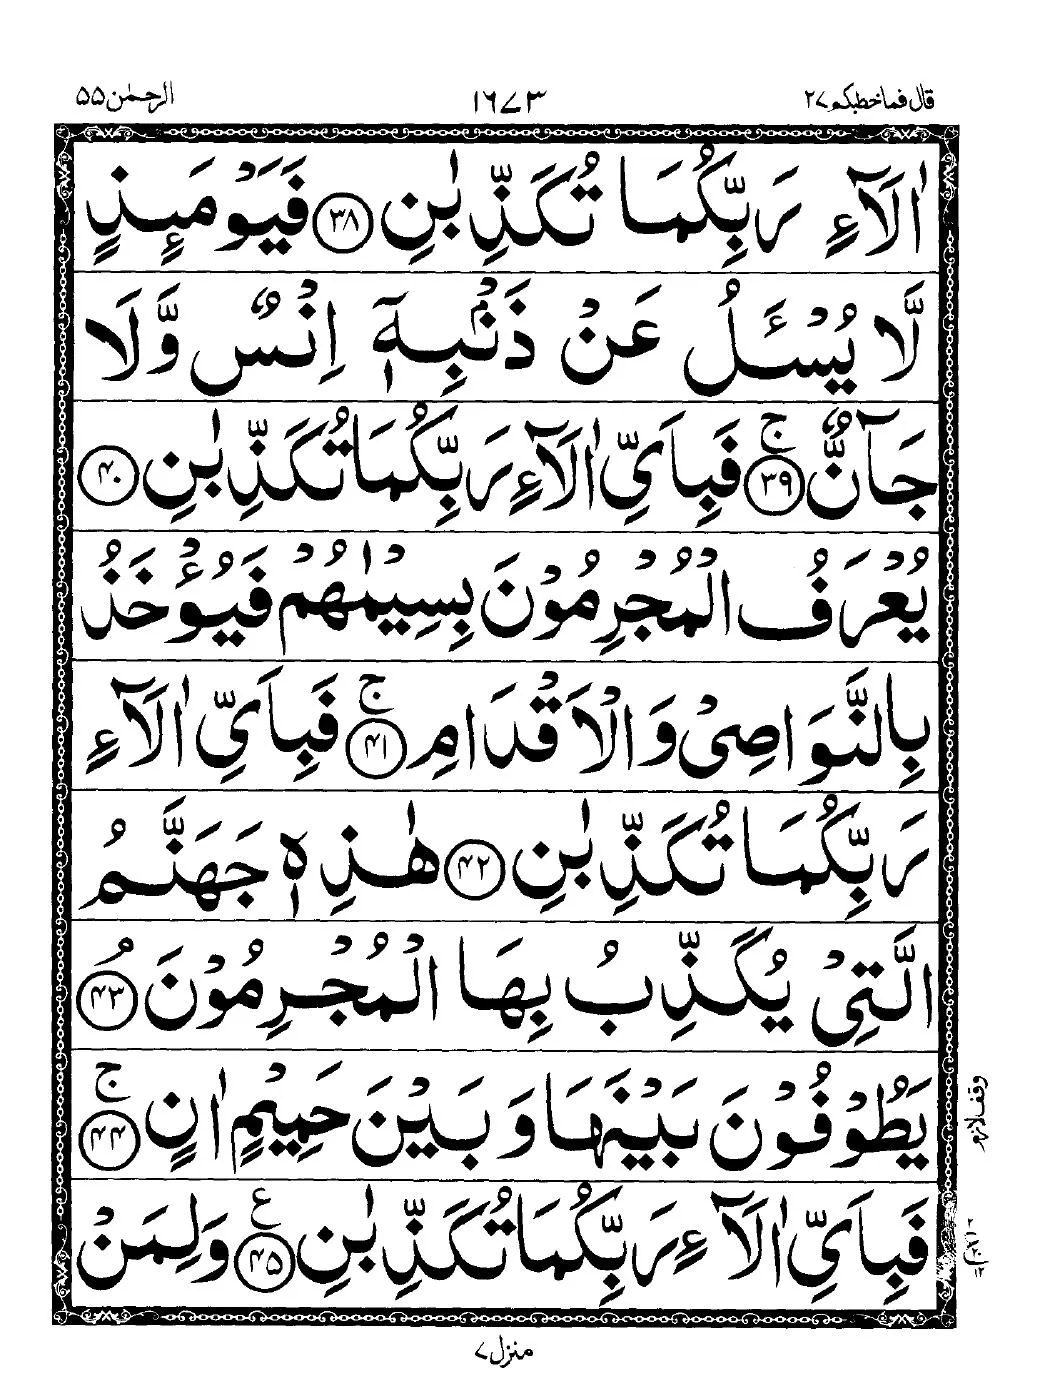 قال فما خطبكم ٢٧ ١٦٧٣ الرحمٰن ٥٥
اٰلَآءِ رَبِّكُمَا تُكَذِّبٰنِ ٣٨ فَيَوْمَئِذٍ
لَّا يُسْـَٔلُ عَنْ ذَنْۢبِهٖٓ اِنْسٌ وَّلَا
جَآنٌّ ۚ ٣٩ فَبِاَيِّ اٰلَآءِ رَبِّكُمَا تُكَذِّبٰنِ ٤٠
يُعْرَفُ الْمُجْرِمُوْنَ بِسِيْمٰهُمْ فَيُؤْخَذُ
بِالنَّوَاصِيْ وَالْاَقْدَامِ ۚ ٤١ فَبِاَيِّ اٰلَآءِ
رَبِّكُمَا تُكَذِّبٰنِ ٤٢ هٰذِهٖ جَهَنَّمُ
الَّتِيْ يُكَذِّبُ بِهَا الْمُجْرِمُوْنَ ۘ ٤٣
يَطُوْفُوْنَ بَيْنَهَا وَبَيْنَ حَمِيْمٍ اٰنٍ ۚ ٤٤
وقف لازم
فَبِاَيِّ اٰلَآءِ رَبِّكُمَا تُكَذِّبٰنِ ع ٤٥ وَلِمَنْ
منزل ٧